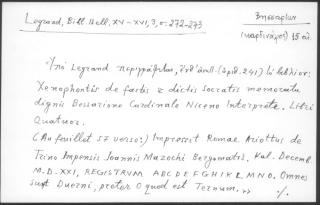 Legrand, Bibl. Hell. XV-XVI, 3, σ. 272-273
Βησσαρίων
Legrand περιγράφεται,
Xenophontis de factis & dictis Socratis memoratu
dignis Bessarione Cardinale Niceno Interprete. Libri
Quatuor.
(Au feuillet 57 verso:) Impressit Romae Ariottus de
Trino Impensis Ioannis Mazochi Bergomatis. Kal. Decemb.
M.D.XXI, REGISTRVM ABCDEFGHIKL MNO. Omnes
sunt Duerni, preter O quod est Ternum. >> ./.